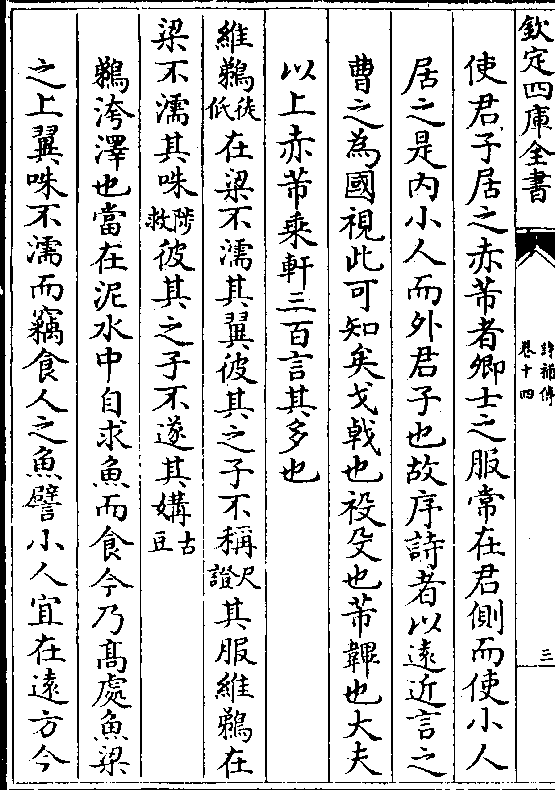 欽定四庫全書
詩補傳
卷十四
三
使君子居之赤芾者卿士之服常在君側而使小人
居之是内小人而外君子也故序詩者以遠近言之
曹之為國視此可知矣戈㦸也祋殳也芾韠也大夫
以上赤芾乗軒三百言其多也
維鵜徒低在梁不濡其翼彼其之子不稱尺證其服維鵜在
梁不濡其咮陟救彼其之子不遂其媾古豆
鵜洿澤也當在泥水中自求魚而食今乃髙處魚梁
之上翼咮不濡而竊食人之魚譬小人宜在遠方今